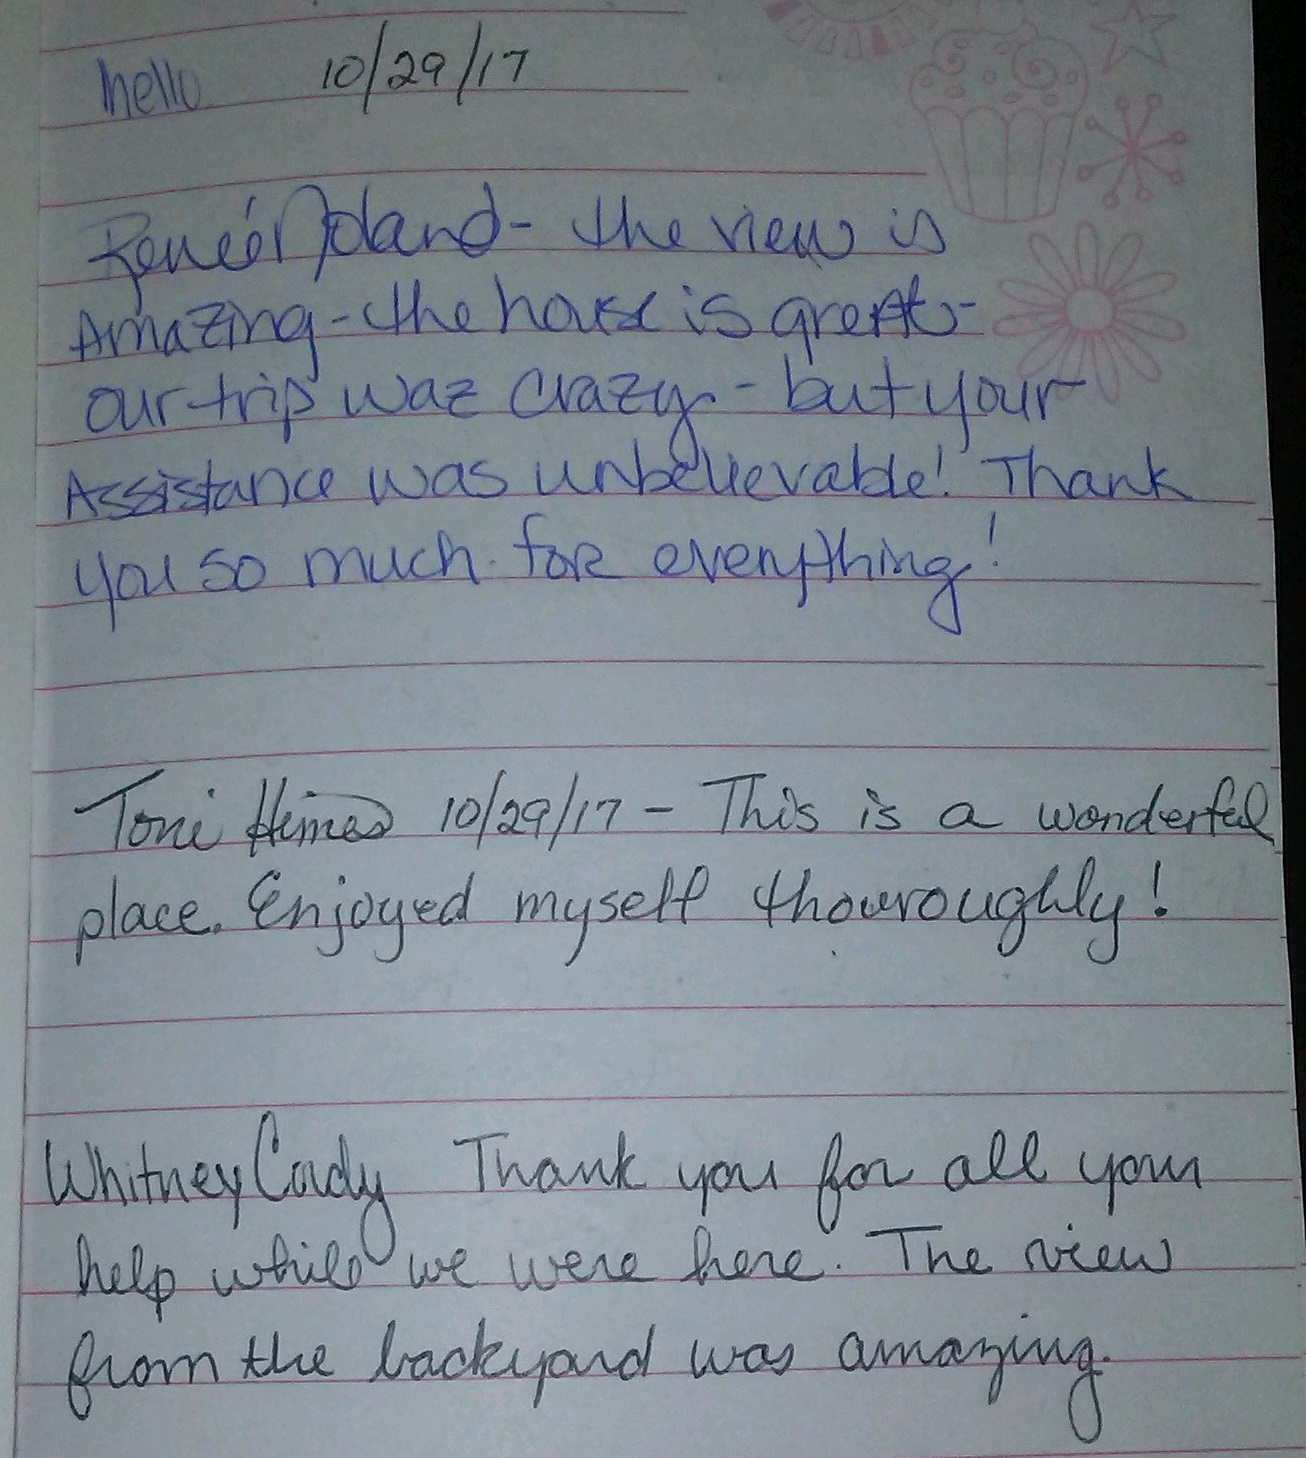 hello 10/29/17
Reneé Noland - the view is
Amazing - the house is great -
our trip waz crazy - but your
Assistance was unbelievable! Thank
you so much for everything!
Toni Himes 10/29/17 - This is a wonderful
place. Enjoyed myself thouroughly!
Whitney Cady Thank you for all your
help while we were here. The view
from the backyard was amazing.